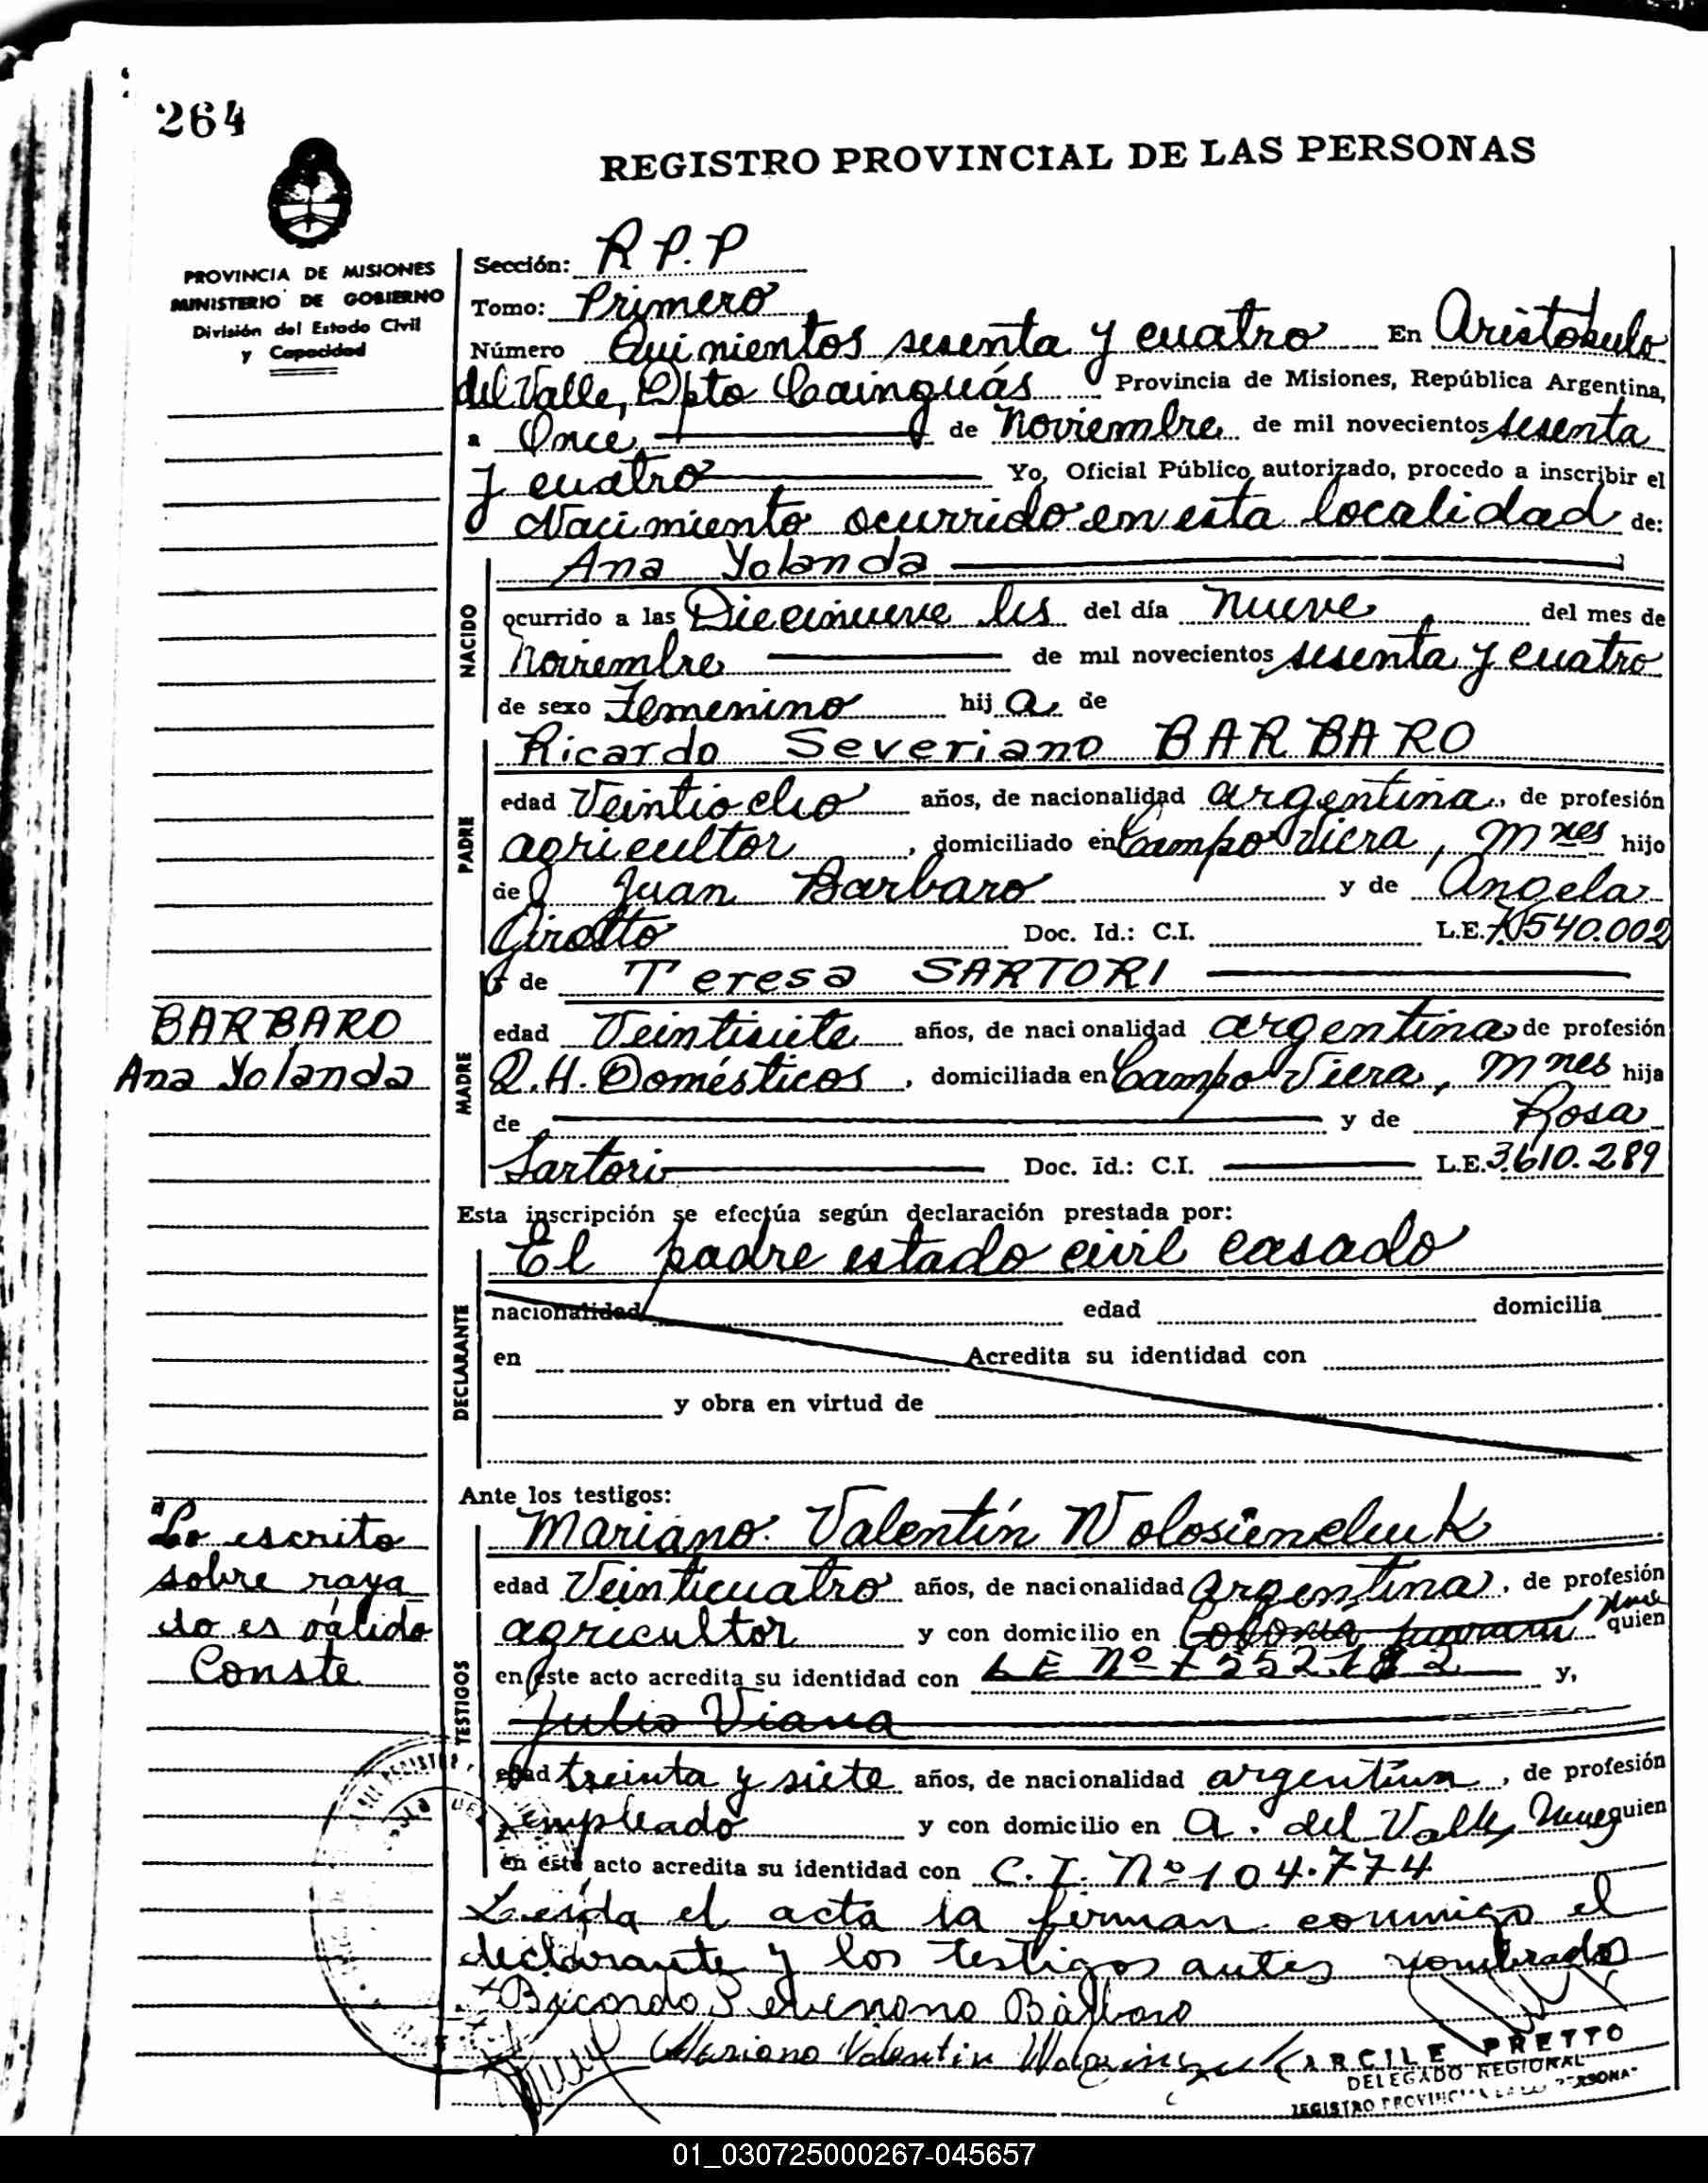 264
REGISTRO PROVINCIAL DE LAS PERSONAS
PROVINCIA DE MISIONES
MINISTERIO DE GOBIERNO
División del Estado Civil
y Capacidad
Sección: R P.P
Tomo: Primero
Número Quinientos sesenta y cuatro En Aristobulo
del Valle, Dpto Cainguás Provincia de Misiones, República Argentina,
a Once de Noviembre de mil novecientos sesenta
y cuatro Yo, Oficial Público autorizado, procedo a inscribir el
Nacimiento ocurrido en esta localidad de:
Ana Yolanda
NACIDO
ocurrido a las Diecinueve hs del día nueve del mes de
Noviembre de mil novecientos sesenta y cuatro
de sexo Femenino hij a de
Ricardo Severiano BARBARO
PADRE
edad Veintiocho años, de nacionalidad argentina, de profesión
agricultor, domiciliado en Campo Viera, Mnes hijo
de Juan Barbaro y de Angela
Girotto Doc. Id.: C.I. L.E. 7.540.002
y de Teresa SARTORI
BARBARO
Ana Yolanda
MADRE
edad Veintisiete años, de nacionalidad argentina de profesión
Q.H. Domésticos, domiciliada en Campo Viera, Mnes hija
de y de Rosa
Sartori Doc. Id.: C.I. L.E. 3.610.289
Esta inscripción se efectúa según declaración prestada por:
El padre estado civil casado
DECLARANTE
nacionalidad edad domicilia
en Acredita su identidad con
y obra en virtud de
Ante los testigos:
Mariano Valentín Wolosienchuk
"Lo escrito
sobre raya
do es válido
Conste
TESTIGOS
edad Veinticuatro años, de nacionalidad Argentina, de profesión
agricultor y con domicilio en Colonia quien
en este acto acredita su identidad con LE Nº y,
Julio Viana
edad treinta y siete años, de nacionalidad argentina, de profesión
empleado y con domicilio en A. del Valle, quien
en este acto acredita su identidad con C.I. Nº 104.774
Leída el acta la firman conmigo el
declarante y los testigos antes nombrados
Bárbaro
Mariano Valentin
ARCILE PRETTO
DELEGADO REGIONAL
REGISTRO PROVINCIAL DE LAS PERSONAS
01_030725000267-045657